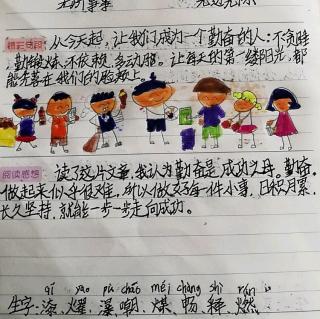 精彩片段 从今天起，让我们成为一个勤奋的人：不贪睡
勤锻炼、不依赖、多动脑。让每天的第一缕阳光，都
能亮落在我们的脸颊上。
阅读感想 读了这片文章，我认为勤奋是成功之母。勤奋，
做起来似乎很难，所以做好每一件小事，日积月累，
长久坚持，就能一步一步走向成功。
qī yào pù cháo méi chàng shì rán
生字：漆、耀、瀑、嘲、煤、畅、释、燃、